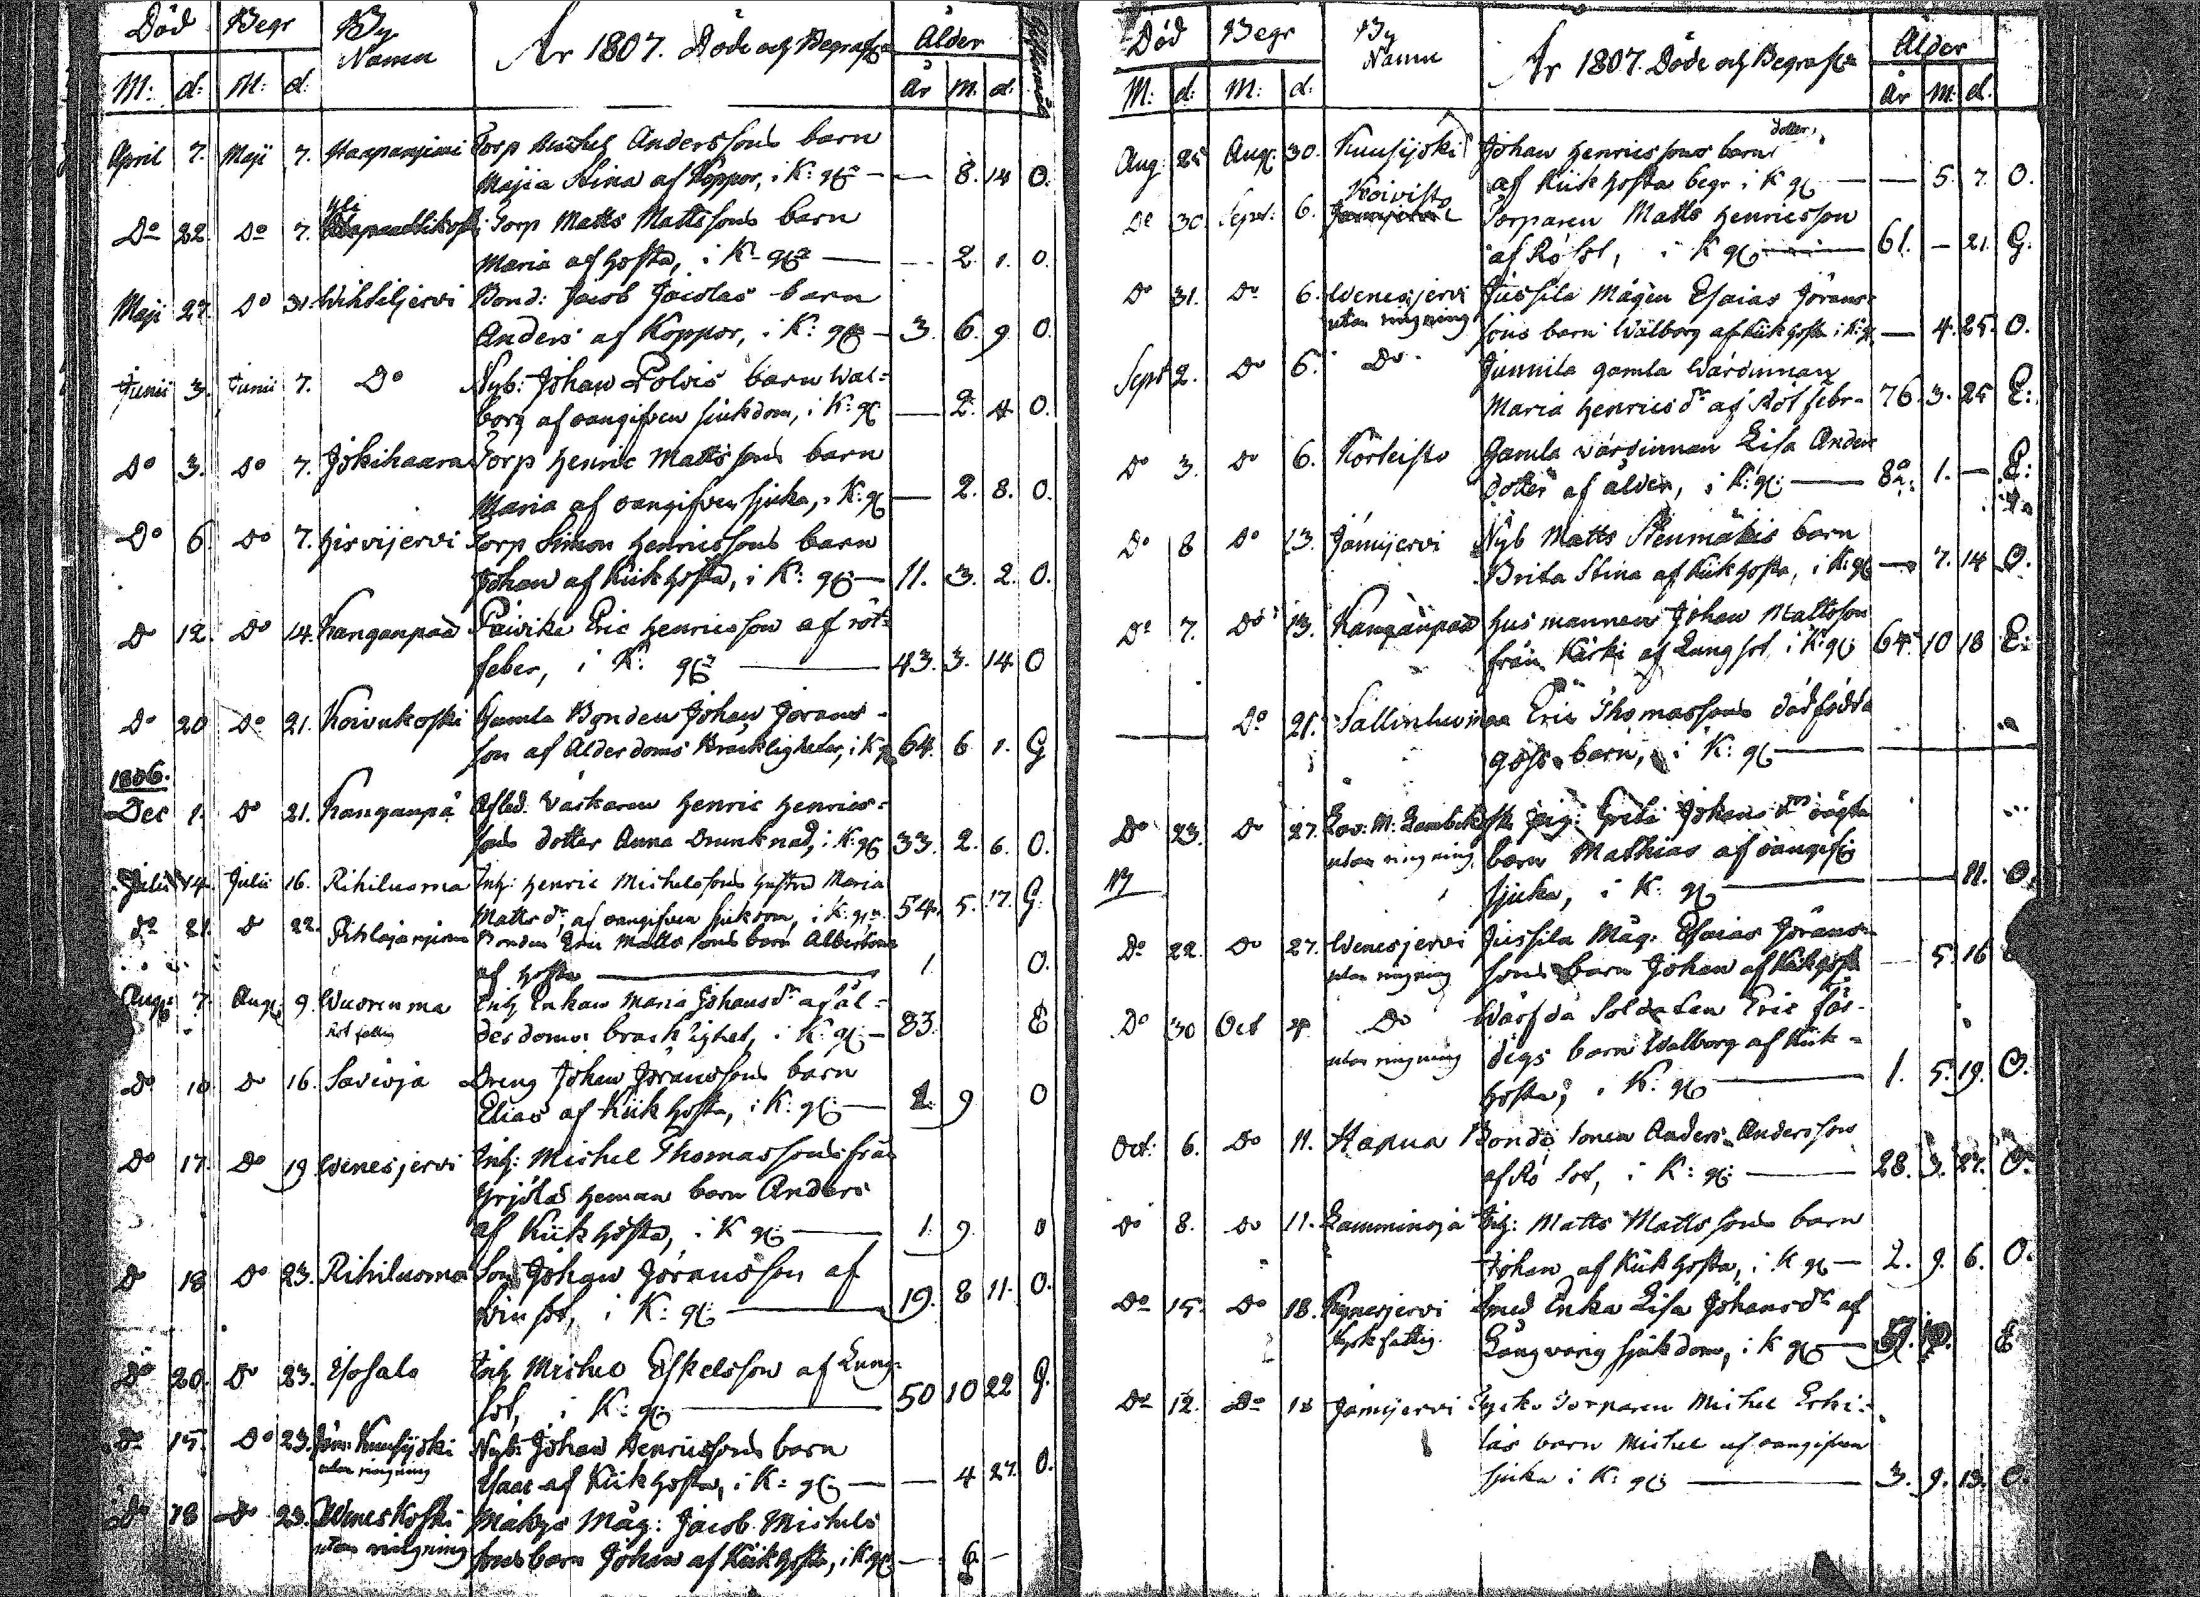 Död Begr By Namn År 1807. Döde och Begrafne Ålder
M: d: M: d: År M. d:
April 7. Maji 7. Haapanjemi Torp Michel Anderssons barn
Majia Stina af Koppor, i K: g: — — 8. 14 O.
Do 22. Do 7. Torp Matts Mattssons barn
Maria af hosta, i K. g: — 2. 1. O.
Maji 27. Do 31. Wihteljervi Bond: Jacob Jacolas barn
Anders af Koppor, i K: g: — 3. 6. 9 O.
Junii 3. Junii 7. Do Nyb: Johan Polvis barn Wal=
borg af oangifven sjukdom, i K: g: — 2. 4. O.
Do 3. Do 7. Jokihaara Torp Henric Mattssons barn
Maria af oangifven sjuka, i K: g: — 2. 8. O.
Do 6. Do 7. Hirvijervi Torp Simon Henricssons barn
Johan af Kikhosta, i K: g: — 11. 3. 2. O.
Do 12. Do 14. Kanganpää Päivike Eric Henricsson af röt=
feber, i K: g: — 43. 3. 14 O
Do 20 Do 21. Koivukoski Gamla Bonden Johan Jörans-
son af Ålderdoms Bräckligheter, i K g: 64. 6 1. G
1806.
Dec 1. Do 21. Kanganpä Afled. Väckaren Henric Henrics=
sons dotter Anna Drunknad, i K: g: 33. 2. 6. O.
Julii 14. Julii 16. Rihiluoma Inh: Henric Michelssons hustru Maria
Matts dr. af oangifven sjukdom, i K. g: 54. 5. 17. G.
do 21. D 22. Bonden Eric Mattssons barn Albertina
af hosta — 1. O.
Aug: 7. Aug: 9. Wuorenma Inh Enkan Maria Johansdr af ål=
derdoms bracklighet, i K. g: — 83. E
Do 10 Do 16. Savioja Dreng Johan Jöranssons barn
Elias af Kikhosta, i K: g: — 2. 9 O
Do 17. Do 19 Wenesjervi Inh: Michel Thomassons från
Yrjölas heman barn Anders
af Kikhosta, i K g: — 1. 9. O
Do 18 Do 23. Rihiluoma Son Johan Jöransson af
i K: g: — 19. 8 11. O.
Do 20. Do 23. Ylosalo Inh Michel Eskelsson af Lung-
sot, i K: g: — 50 10 22 G.
Do 15. Do 23. Jäm: Kuusijoki Nyb: Johan Henricssons barn
utan ringning Isaac af Kikhosta, i K: g: — — 4 27. O.
Do 18 Do 23. Weneskoski Mäkys Måg: Jacob Michels
utan ringning sons barn Johan af Kikhosta, i K g: — 6. —
Död Begr By Namn År 1807. Döde och Begrafne Ålder
M: d: M: d: År M: d.
Aug: 25 Aug: 30. Kuusijoki Johan Henricssons barn dotter
af Kikhosta begr i K g: — — 5. 7. O.
Do 30. Sept: 6. Koivisto Torparen Matts Henricsson
af Rösot, i K g: — 61. — 21. G.
Do 31. Do 6. Wenesjervi Jussila Mågen Esaias Jörans=
utan ringning sons barn Walborg af Kikhosta i K: g: — 4. 25. O.
Sept 2. Do 6. Do Junnila gamla Wärdinnan
Maria Henricsdr af Rötfebr. 76. 3. 25 E:
Do 3. Do 6. Gamla wärdinnan Lisa Anders
dotter af ålder, i K: g: — 82. 1. — E:
Do 8 Do 13. Jämijervi Nyb Matts Stenmäkis barn
Brita Stina af Kikhosta, i K: g: — 7. 14 O.
Do 7. Do 13. Kanganpää Husmannen Johan Mattsson
från Karki af Lungsot, i K: g: 64. 10 18 E:
Do 21. Sallinluomaa Eric Thomassons dödfödda
gosse barn, i K: g: —
Do 23. Do 27. Lav: M: pig: Greta Johans dr oägta
utan ringning barn Mathias af oangifv
sjuka, i K. g: — 11. O.
Do 22. Do 27. Wenesjervi Jussila Måg: Esaias Jörans-
utan ringning sons barn Johan af Kikhosta — 5. 16
Do 30 Oct 4. Do Wärfda Soldaten Eric För-
utan ringning digs barn Walborg af Kik-
hosta, i K: g: — 1. 5. 19. O.
Oct: 6. Do 11. Hapua Bonde Sonen Anders Andersson
af Rö sot, i K: g: — 28. 3. 27. O.
Do 8. Do 11. Lamminoja Inh: Matts Mattssons barn
Johan af Kikhosta, i K g: — 2. 9. 6. O.
Do 15. Do 18. Kynesjervi Smed Enka Lisa Johansdr af
Långvarig sjukdom, i K g: — E
Do 12. Do 18 Jämijervi Torparen Michel Erki-
läs barn Michel af oangifven
sjuka i K: g: — 3. 9. 13. O.